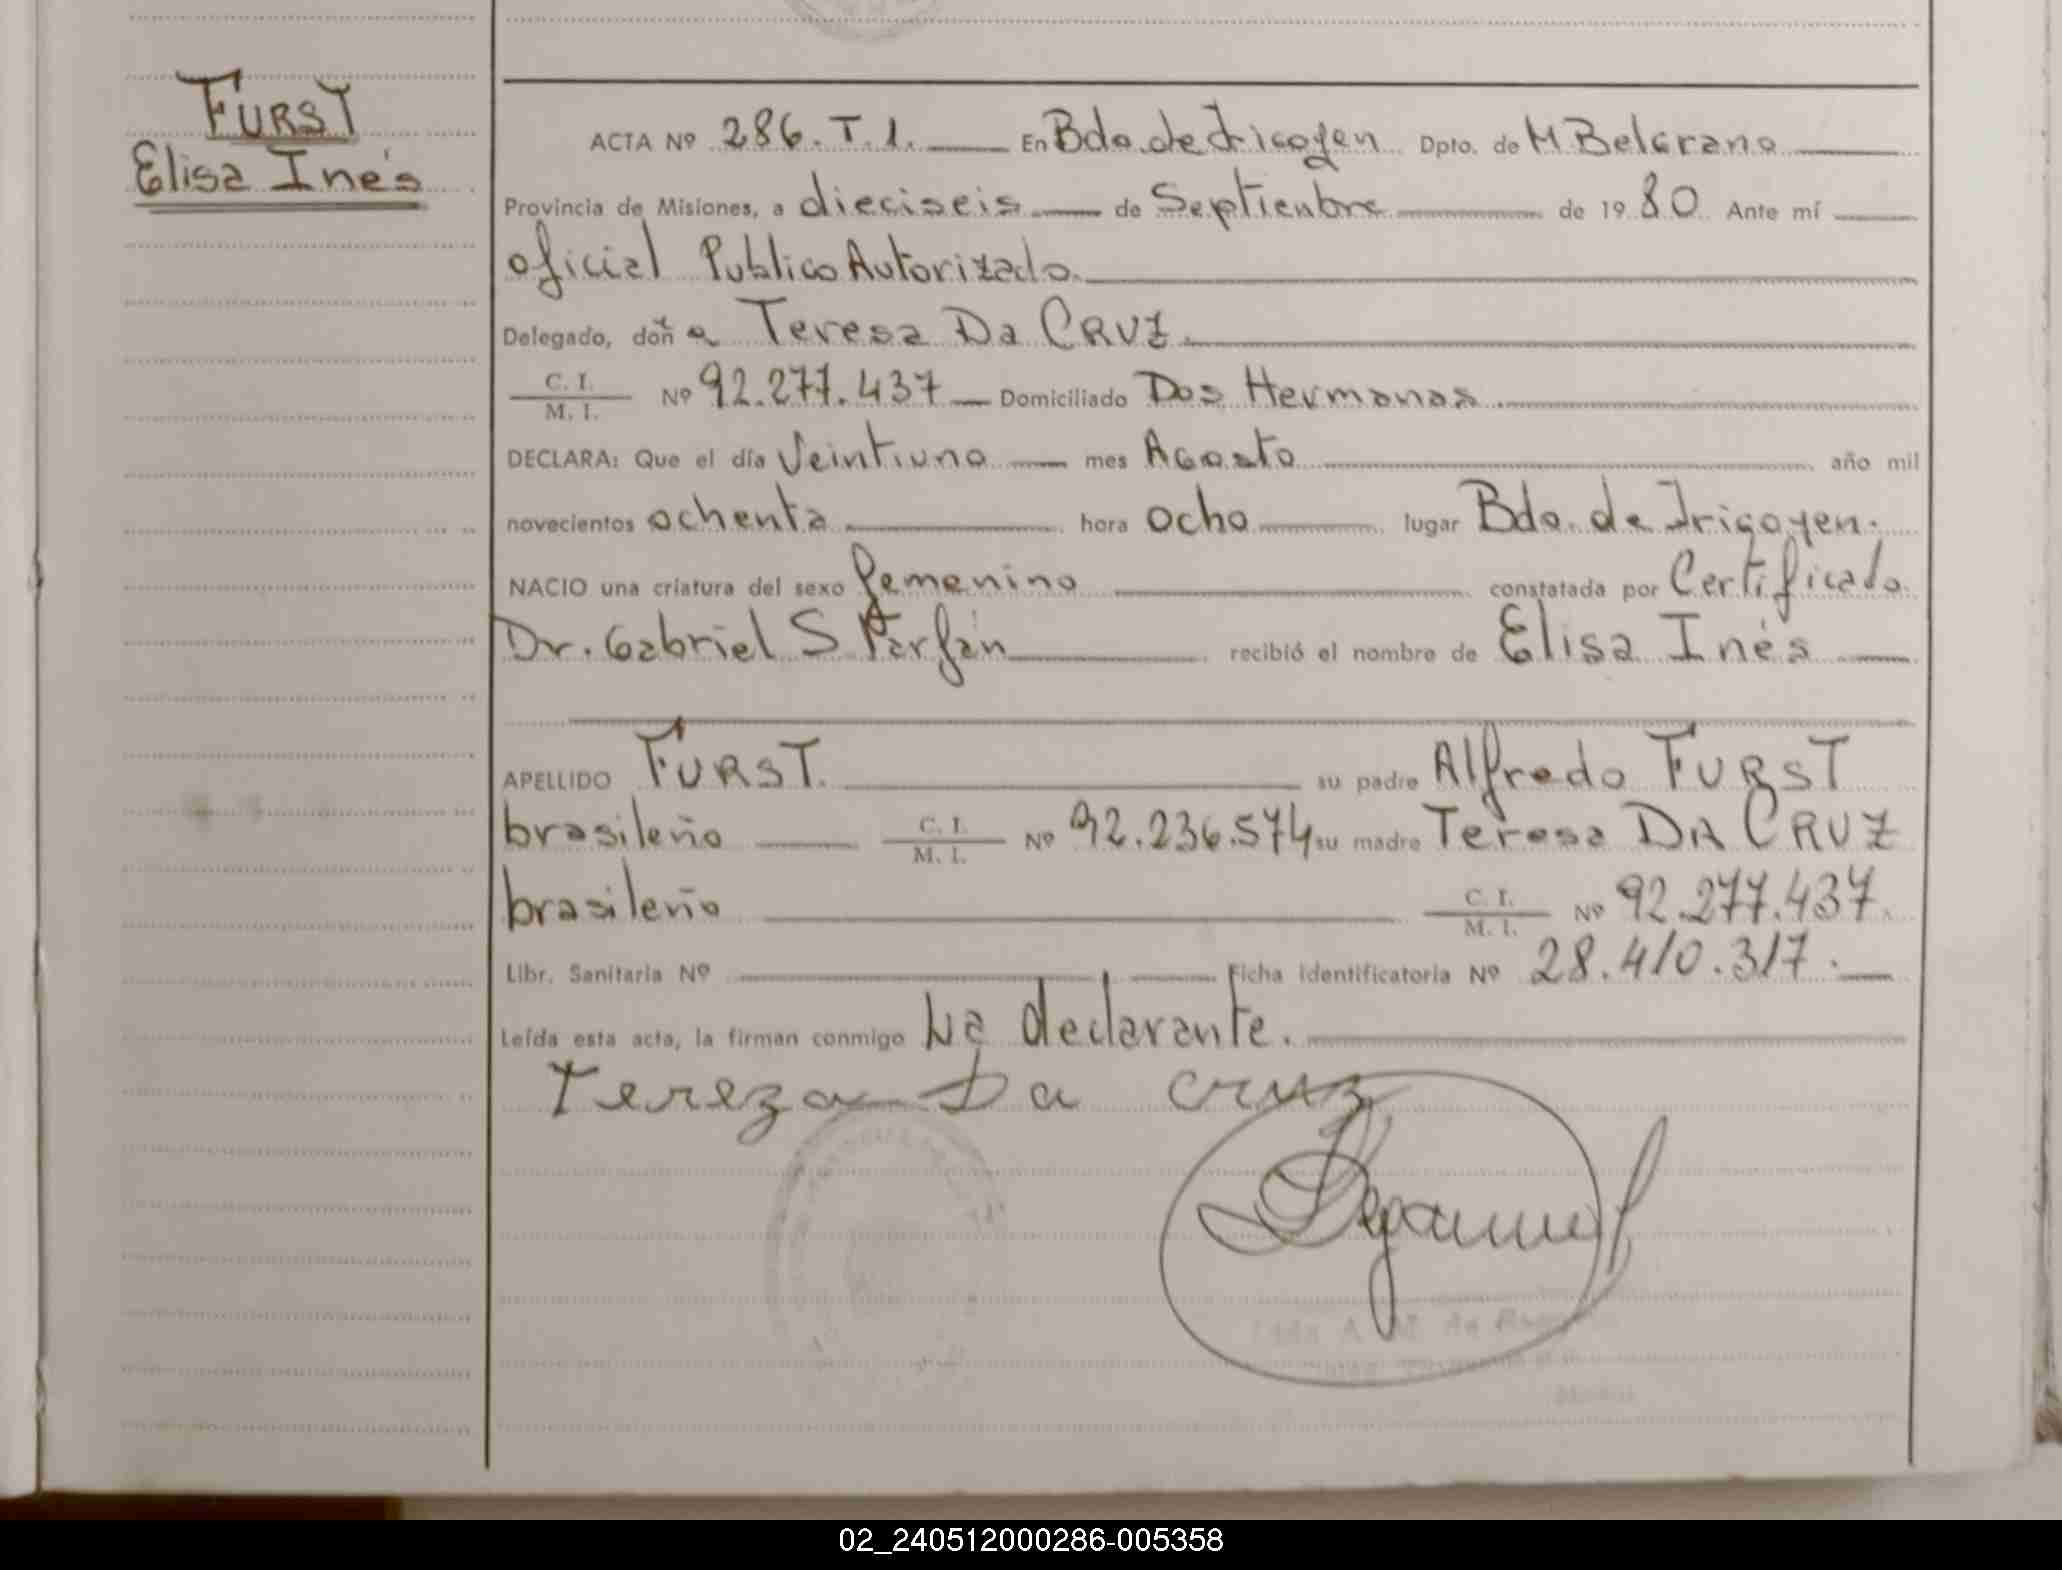 FURST
Elisa Inés
ACTA Nº 286. T. 1. En Bdo. de Irigoyen Dpto. de M Belgrano
Provincia de Misiones, a dieciseis de Septienbre de 1980 Ante mí
oficial Publico Autorizado.
Delegado, doña Teresa Da CRUZ.
C. I.
M. I. Nº 92.277.437 Domiciliado Dos Hermanas.
DECLARA: Que el día Veintiuno mes Agosto año mil
novecientos ochenta hora ocho lugar Bdo. de Irigoyen.
NACIO una criatura del sexo femenino constatada por Certificado.
Dr. Gabriel S Farfán recibió el nombre de Elisa Inés
APELLIDO FURST. su padre Alfredo FURST
brasileño C. I. M. I. Nº 92.236.574 su madre Teresa DA CRUZ
brasileño C. I. M. I. Nº 92.277.437.
Libr. Sanitaria Nº Ficha identificatoria Nº 28.410.317.
Leída esta acta, la firman conmigo La declarante.
Tereza Da Cruz
02_240512000286-005358